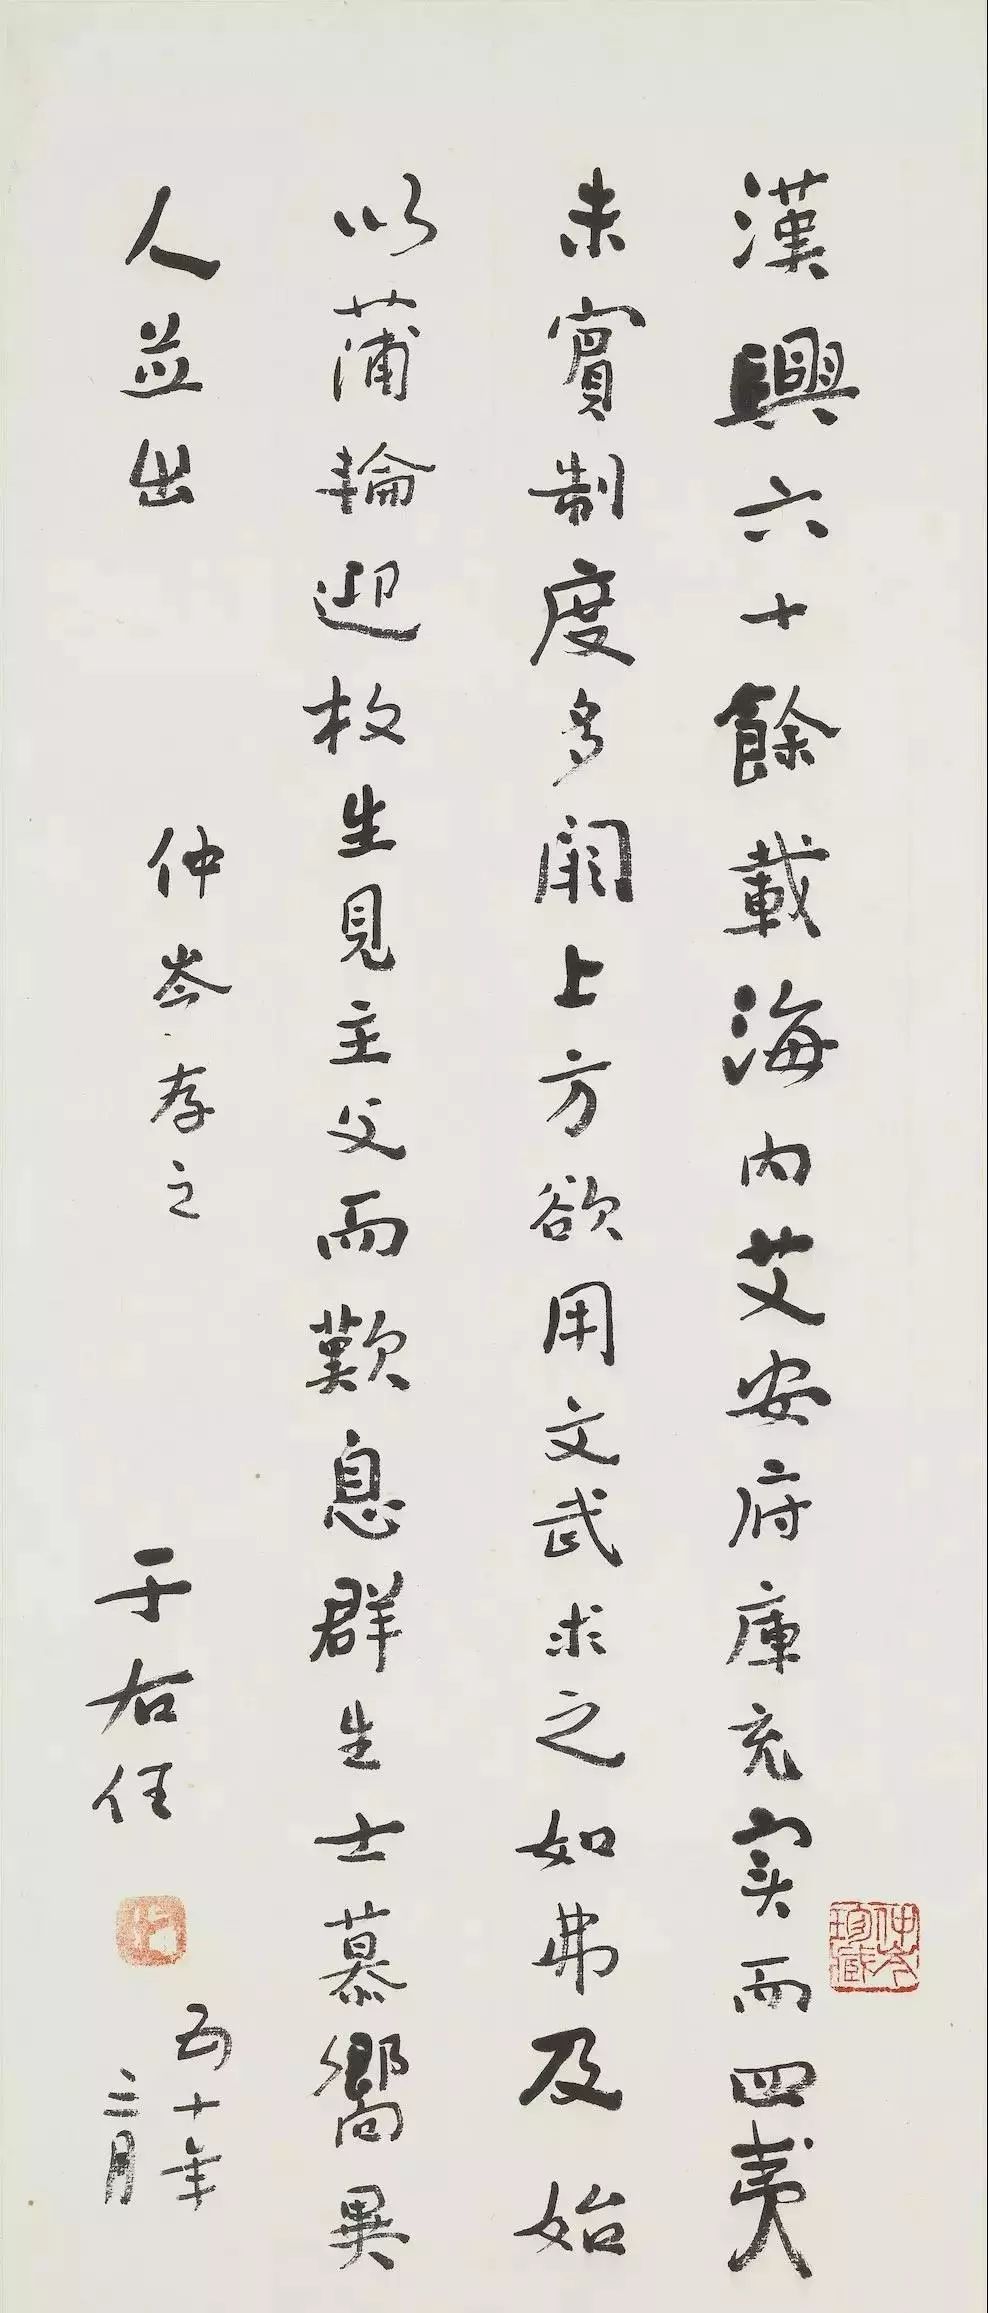 漢興六十餘載海内艾安府庫充实而四夷
未賓制度多闕上方欲用文武求之如弗及始
以蒲輪迎枚生見主父而歎息群生士慕嚮異
人並出
仲岑存之
于右任
五十年
二月
仲岑
珍藏